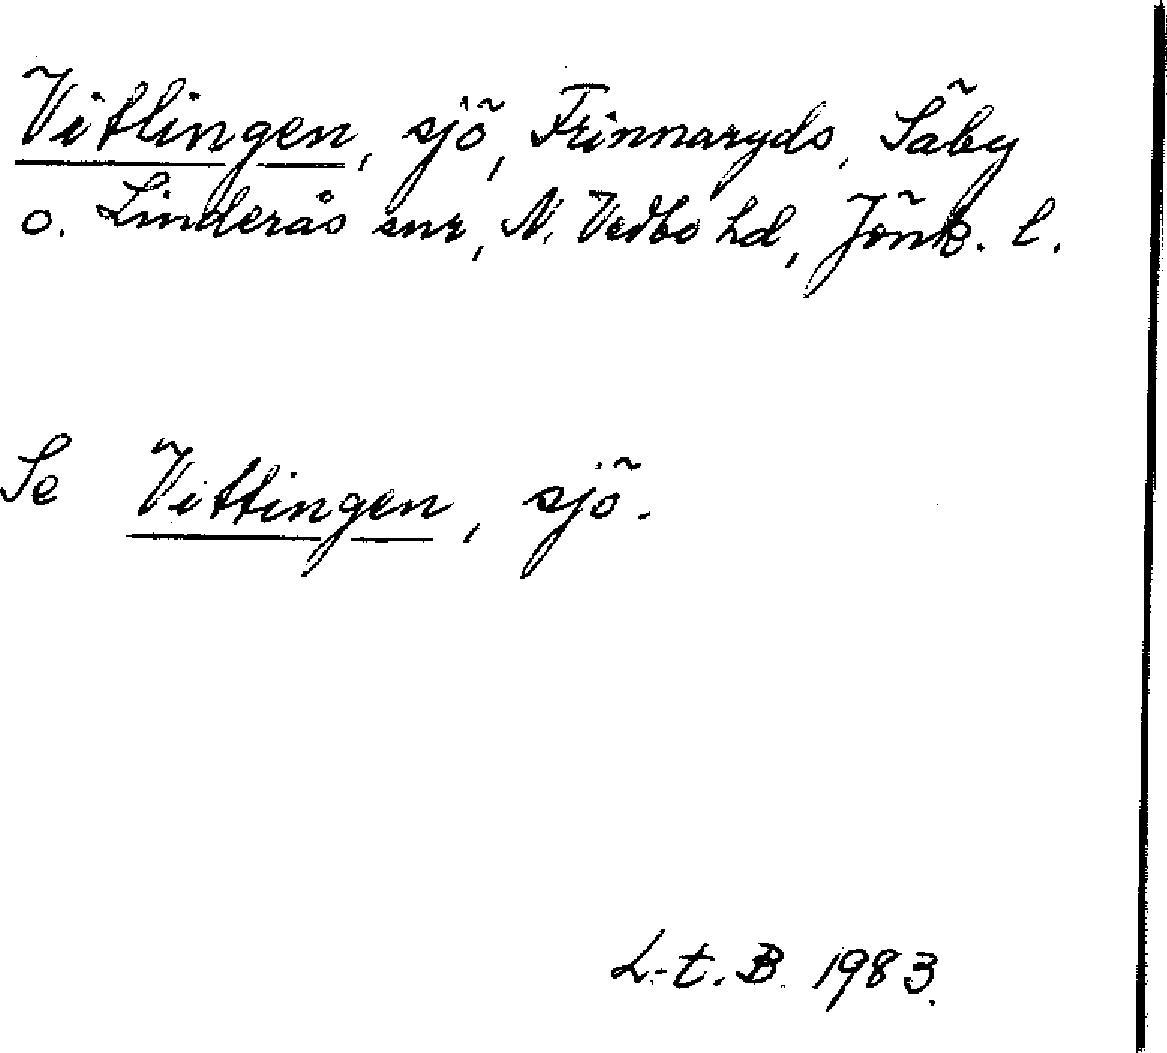 Vitlingen, sjö, Frinnaryds, Säby
o. Linderås snr, N. Vedbo hd, Jönk. l.
Se Vittingen, sjö.
L-t. B. 1983.